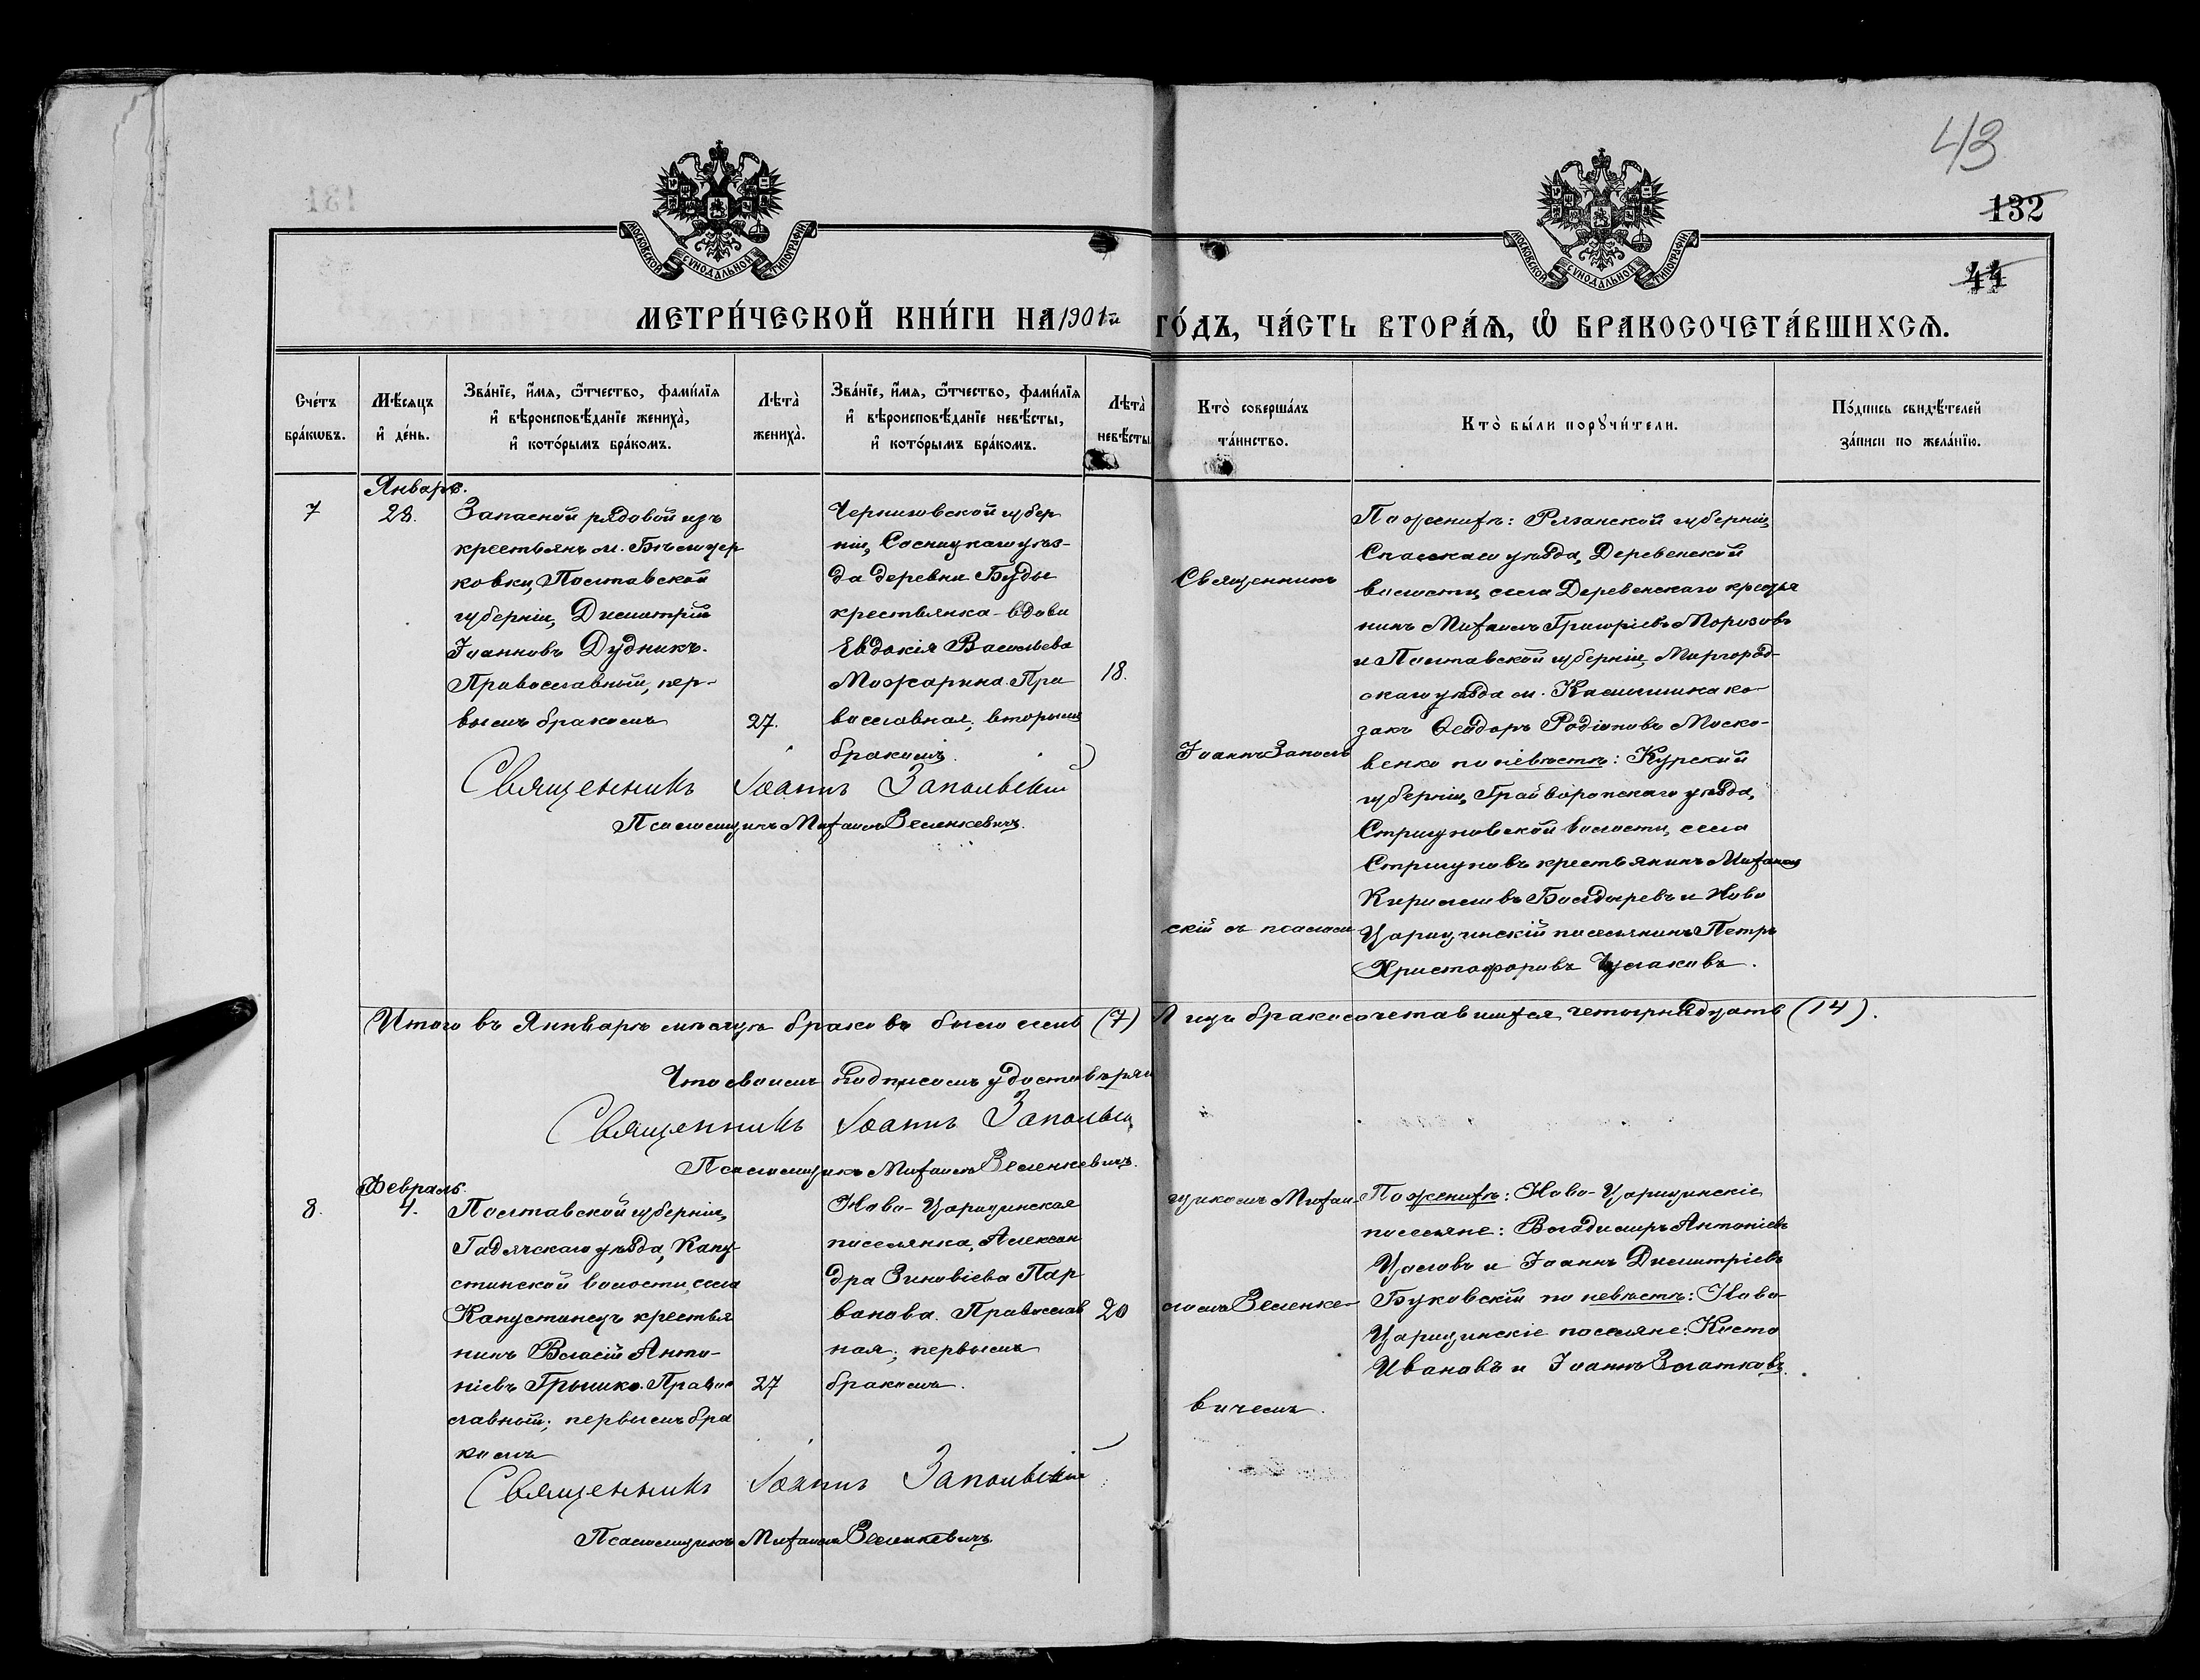 43
132
44
МОСКОВСКОЙ СѴНОДАЛЬНОЙ ТИПОГРАФІИ
МОСКОВСКОЙ СѴНОДАЛЬНОЙ ТИПОГРАФІИ
МЕТРИ́ЧЕСКОЙ КНИ́ГИ НА 1901й ГО́ДЪ, ЧА́СТЬ ВТОРА́Ѧ, Ѡ҆ БРАКОСОЧЕТА́ВШИХСѦ.
Сче́тъ
бра́кѡвъ.
Мѣ́сяцъ
и҆ де́нь.
Зва́нїе, и҆́мѧ, ѻ҆́тчество, фами́лїѧ
и҆ вѣроисповѣ́данїе жениха̀,
и҆ кото́рымъ бра́комъ.
Лѣта̀
жениха̀.
Зва́нїе, и҆́мѧ, ѻ҆́тчество, фами́лїѧ
и҆ вѣроисповѣ́данїе невѣ́сты,
и҆ кото́рымъ бра́комъ.
Лѣта̀
невѣ́сты
Кто̀ соверша́лъ
та́инство.
Кто̀ бы́ли порꙋчи́тели.
По́дпись свидѣ́телей
за́писи по жела́нїю.
Январь.
7
28.
Запасной рядовой изъ
крестьянъ м. Бѣлоцер
ковки, Полтавской
губерніи, Димитрій
Іоанновъ Дудникъ.
Православный, пер-
вымъ бракомъ
27.
Черниговской губер
ніи, Сосницкаго уѣз-
да деревни Буды
крестьянка-вдова
Евдокія Васильева
Можарина. Пра
вославная; вторымъ
бракомъ.
18.
Священникъ
Іоаннъ Заполь
скій съ псалом
По женихѣ: Рязанской губерніи
Спасскаго уѣзда, Деревенской
волости, села Деревенскаго крестья
нинъ Михаилъ Григоріевъ Морозовъ
и Полтавской губерніи, Миргород-
скаго уѣзда м. Камышина ко-
закъ Ѳеодоръ Родіоновъ Моско-
венко по невѣстѣ: Курской
губерніи, Грайворонскаго уѣзда,
Стригуновской волости, села
Стригуновъ крестьянинъ Михаилъ
Кирилловъ Болдыревъ и Ново
Царицинскій поселянинъ Петръ
Христофоровъ
Священникъ Іоаннъ Запольскій
Псаломщикъ Михаилъ Зеленкевичъ.
Итого въ Январѣ мѣсяцѣ браковъ было семь (7) Лицъ бракосочетавшихся четырнадцать (14).
Что своимъ подписомъ удостовѣряю
Священникъ Іоаннъ Запольскій
Псаломщикъ Михаилъ Зеленкевичъ.
Февраль.
8.
4.
Полтавской губерніи,
Гадячскаго уѣзда, Капу-
стинской волости, села
Капустинецъ крестья
нинъ Власій Анто-
ніевъ Грынико. Право
славный; первымъ бра
комъ
27
Ново-Царицинская
поселянка, Алексан
дра Зиновіева Пар
ванова. Православ
ная; первымъ
бракомъ.
20
щикомъ Михаи
ломъ Зеленке-
вичемъ.
По женихѣ: Ново-Царицинскіе
поселяне: Владимиръ Антоніевъ
и Іоаннъ Димитріевъ
Буковскій по невѣстѣ: Ново-
Царицинскіе поселяне: Коста
Ивановъ и Іоаннъ Златковъ.
Священникъ Іоаннъ Запольскій
Псаломщикъ Михаилъ Зеленкевичъ